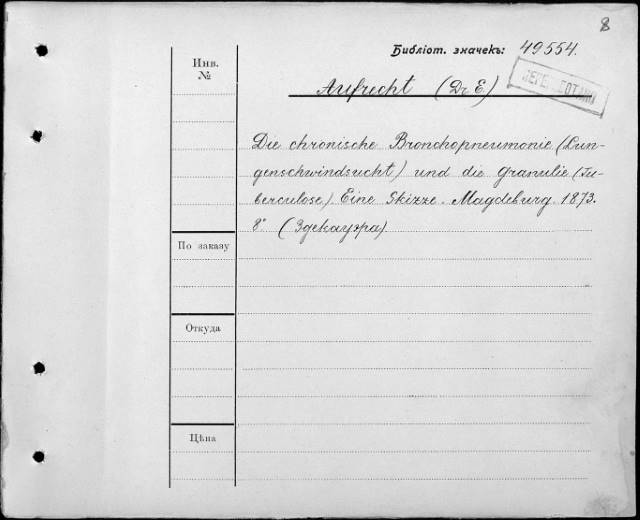 8
Библіот. значекъ: 49554.
Инв.
№
Aufrecht (Dr E)
Die chronische Bronchopneumonie (Lun-
genschwindsucht) und die Granulie (Tu-
berculose). Eine Skizze. Magdeburg. 1873.
8° (Здекауэра)
По заказу
Откуда
Цѣна